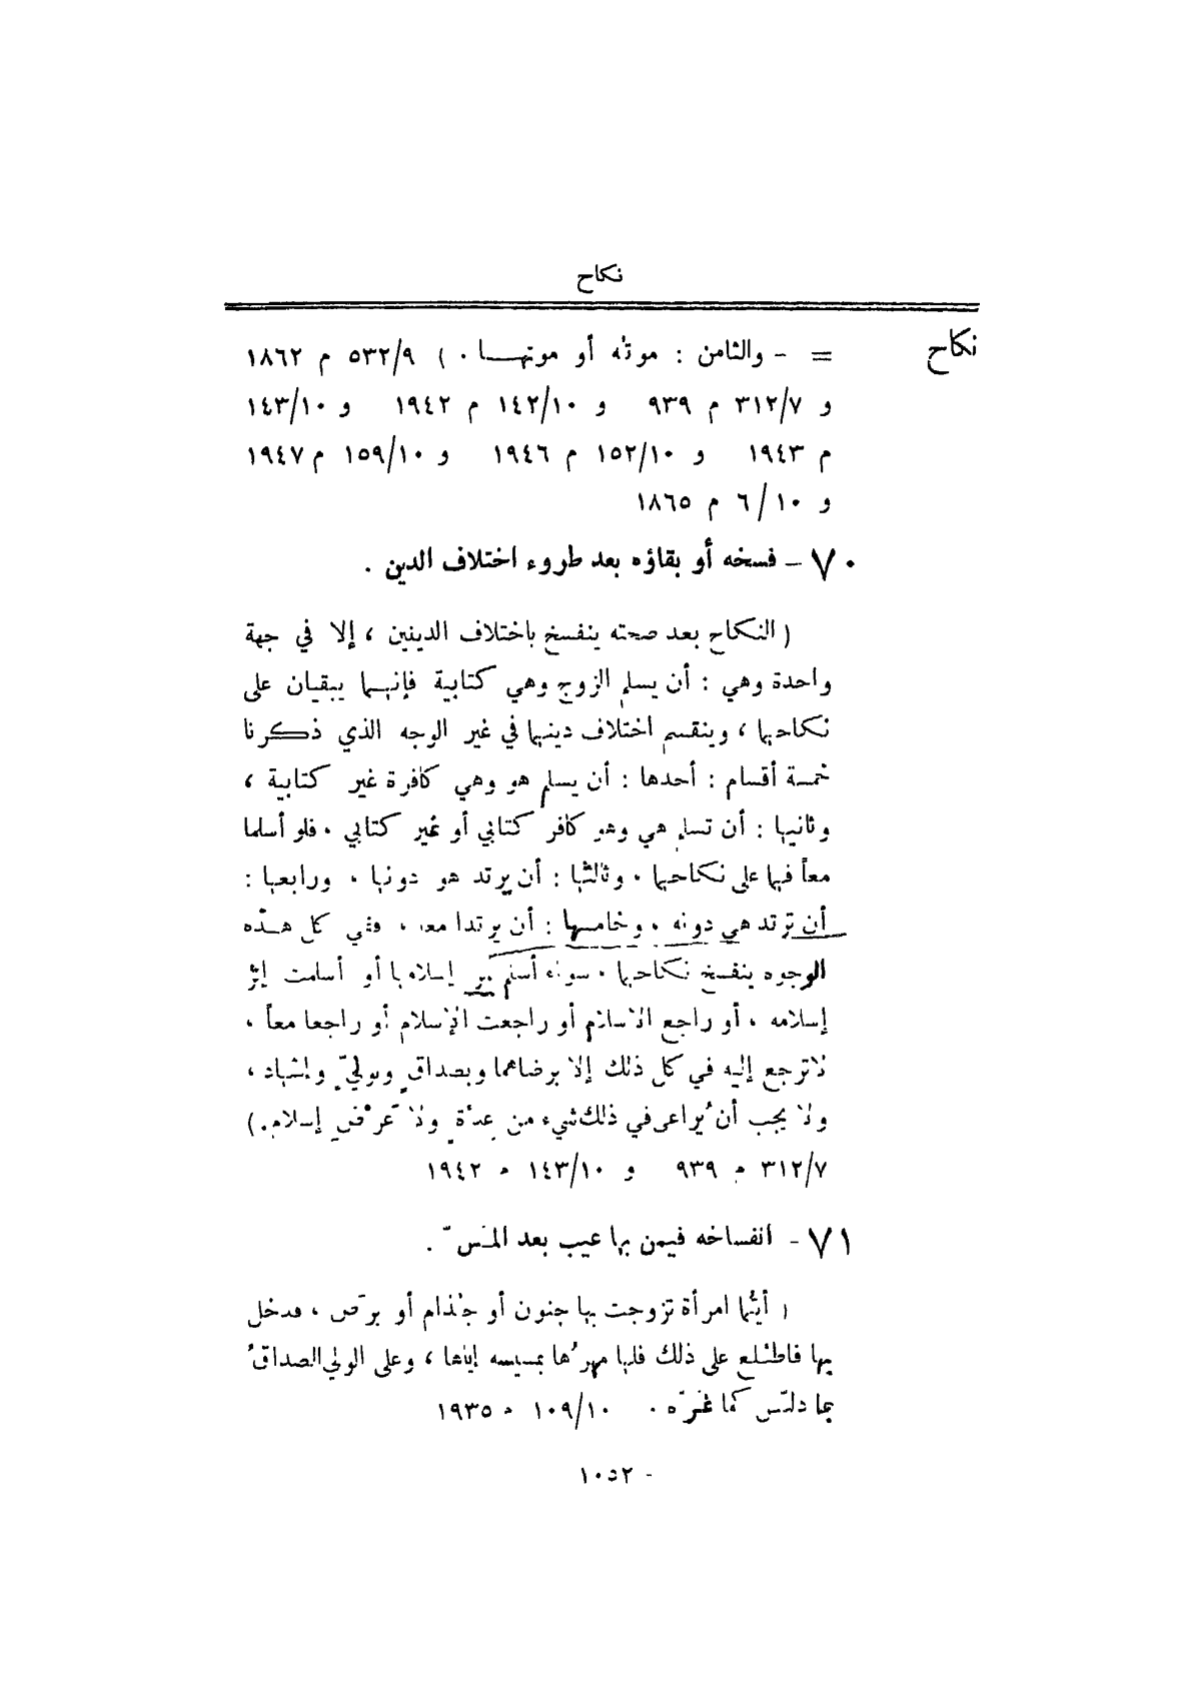 نكاح
نكاح
= - والثامن : موته أو موتهـا . ) ٥٣٢/٩ م ١٨٦٢
و ٣١٢/٧ م ٩٣٩ و ١٤٢/١٠ م ١٩٤٢ و ١٤٣/١٠
م ١٩٤٣ و ١٥٢/١٠ م ١٩٤٦ و ١٥٩/١٠ م ١٩٤٧
و ٦/١٠ م ١٨٦٥
٧٠ - فسخه أو بقاؤه بعد طروء اختلاف الدين .
( النكاح بعد صحته ينفسخ باختلاف الدينين ، إلا في جهة
واحدة وهي : أن يسلم الزوج وهي كتابية فإنهما يبقيان على
نكاحهما ، وينقسم اختلاف دينهما في غير الوجه الذي ذكرنا
خمسة أقسام : أحدها : أن يسلم هو وهي كافرة غير كتابية ،
وثانيها : أن تسلم هي وهو كافر كتابي أو غير كتابي . فلو أسلما
معاً فهما على نكاحهما . وثالثها : أن يرتد هو دونها . ورابعها :
أن ترتد هي دونه . وخامسها : أن يرتدا معا . ففي كل هـذه
الوجوه ينفسخ نكاحهما . سواء أسلم إثر إسلامها أو أسلمت إثر
إسلامه ، أو راجع الاسلام أو راجعت الإسلام أو راجعا معاً ،
لا ترجع إليه في كل ذلك إلا برضاهما وبصداقٍ وبوليّ وإشهاد ،
ولا يجب أن يُراعى في ذلك شيء من عدّة ولا عَرْض إسلام . )
٣١٢/٧ م ٩٣٩ و ١٤٣/١٠ م ١٩٤٢
٧١ - انفساخه فيمن بها عيب بعد المسّ .
( أيّما امرأة تزوجت بها جنون أو جُذام أو برَص ، فدخل
بها فاطّلع على ذلك فلها مهرُها بمسيسه إياها ، وعلى الولي الصداقُ
بما دلّس كما غرّه . ١٠٩/١٠ م ١٩٣٥
- ١٠٥٢